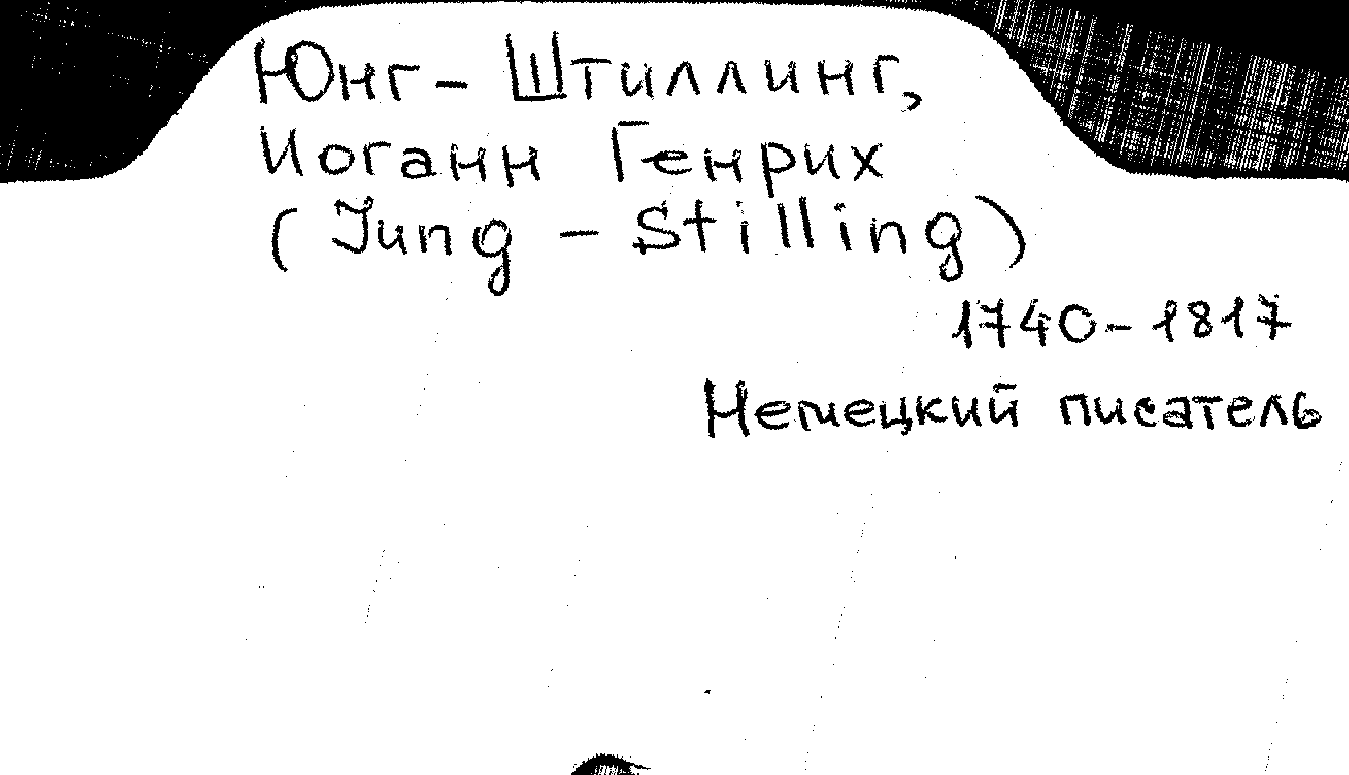 Юнг - Штиллинг,
Иоганн Генрих
(Jung - Stilling)
1740 - 1817
Немецкий писатель